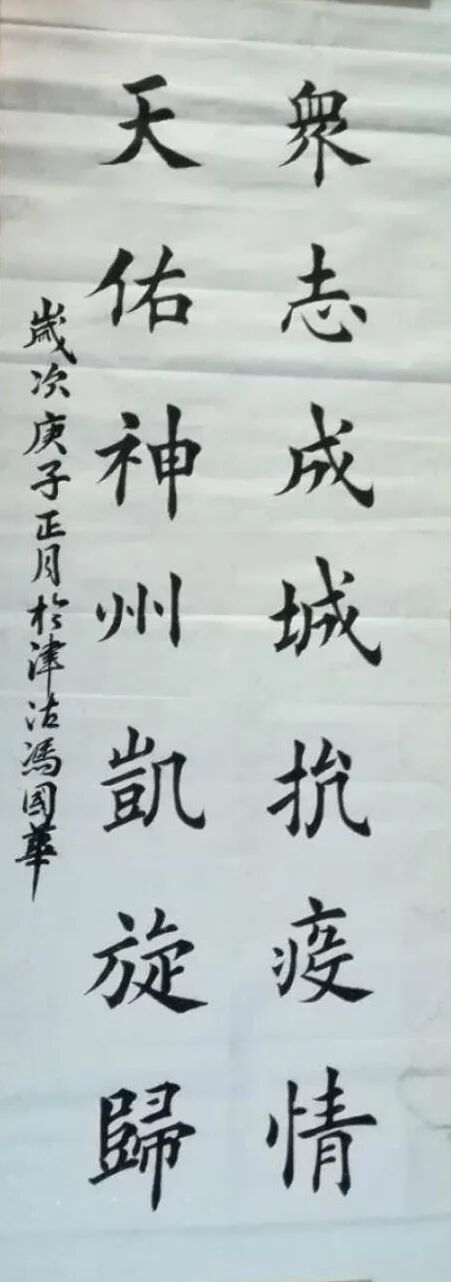 眾志成城抗疫情
天佑神州凱旋歸
歲次庚子正月於津沽馮國華